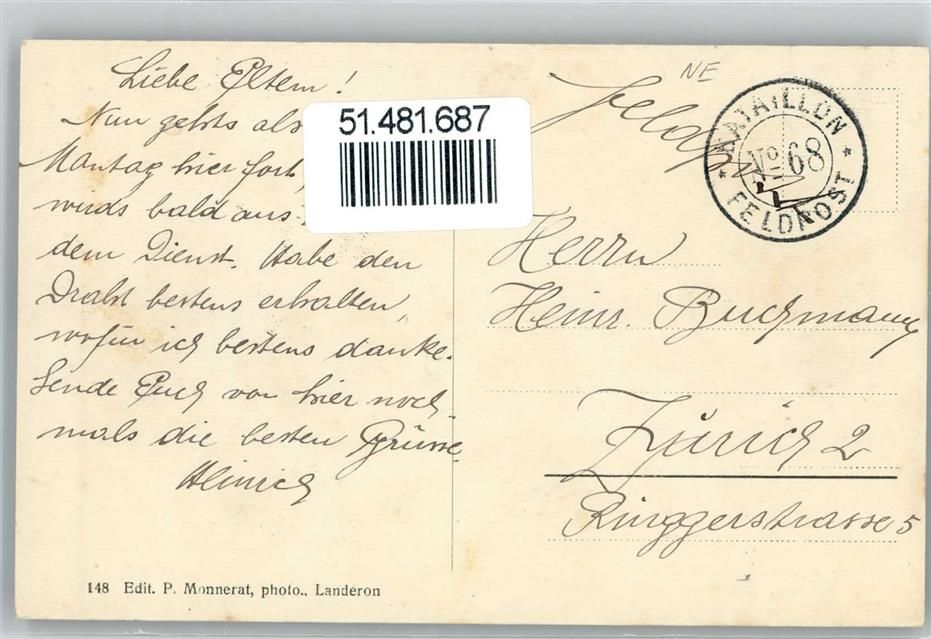 Liebe Eltern!
Nun gehts als
Montag hier fort,
wirds bald aus
dem Dienst. Habe den
Draht bestens erhalten,
wofür ich bestens danke.
Sende Euch von hier noch
mals die besten Grüsse
Heinrich
148 Edit. P. Monnerat, photo., Landeron
51.481.687
NE
Feldp
BATAILLON
No 68
FELDPOST
Herrn
Heinr. Buchmann
Zürich 2
Ringgerstrasse 5